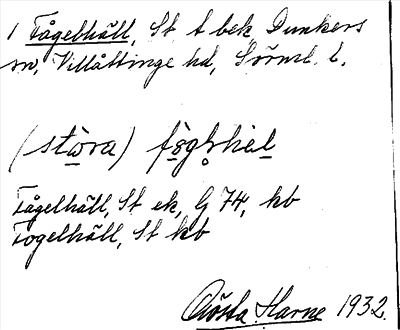 1 Fågelhäll, St t bek, Dunkers
sn, Villåttinge hd, Sörml. l.
(stora) fög
Fågelhäll, St ek, G 74, kb
Fogelhäll, St kb
Gösta Harne 1932.